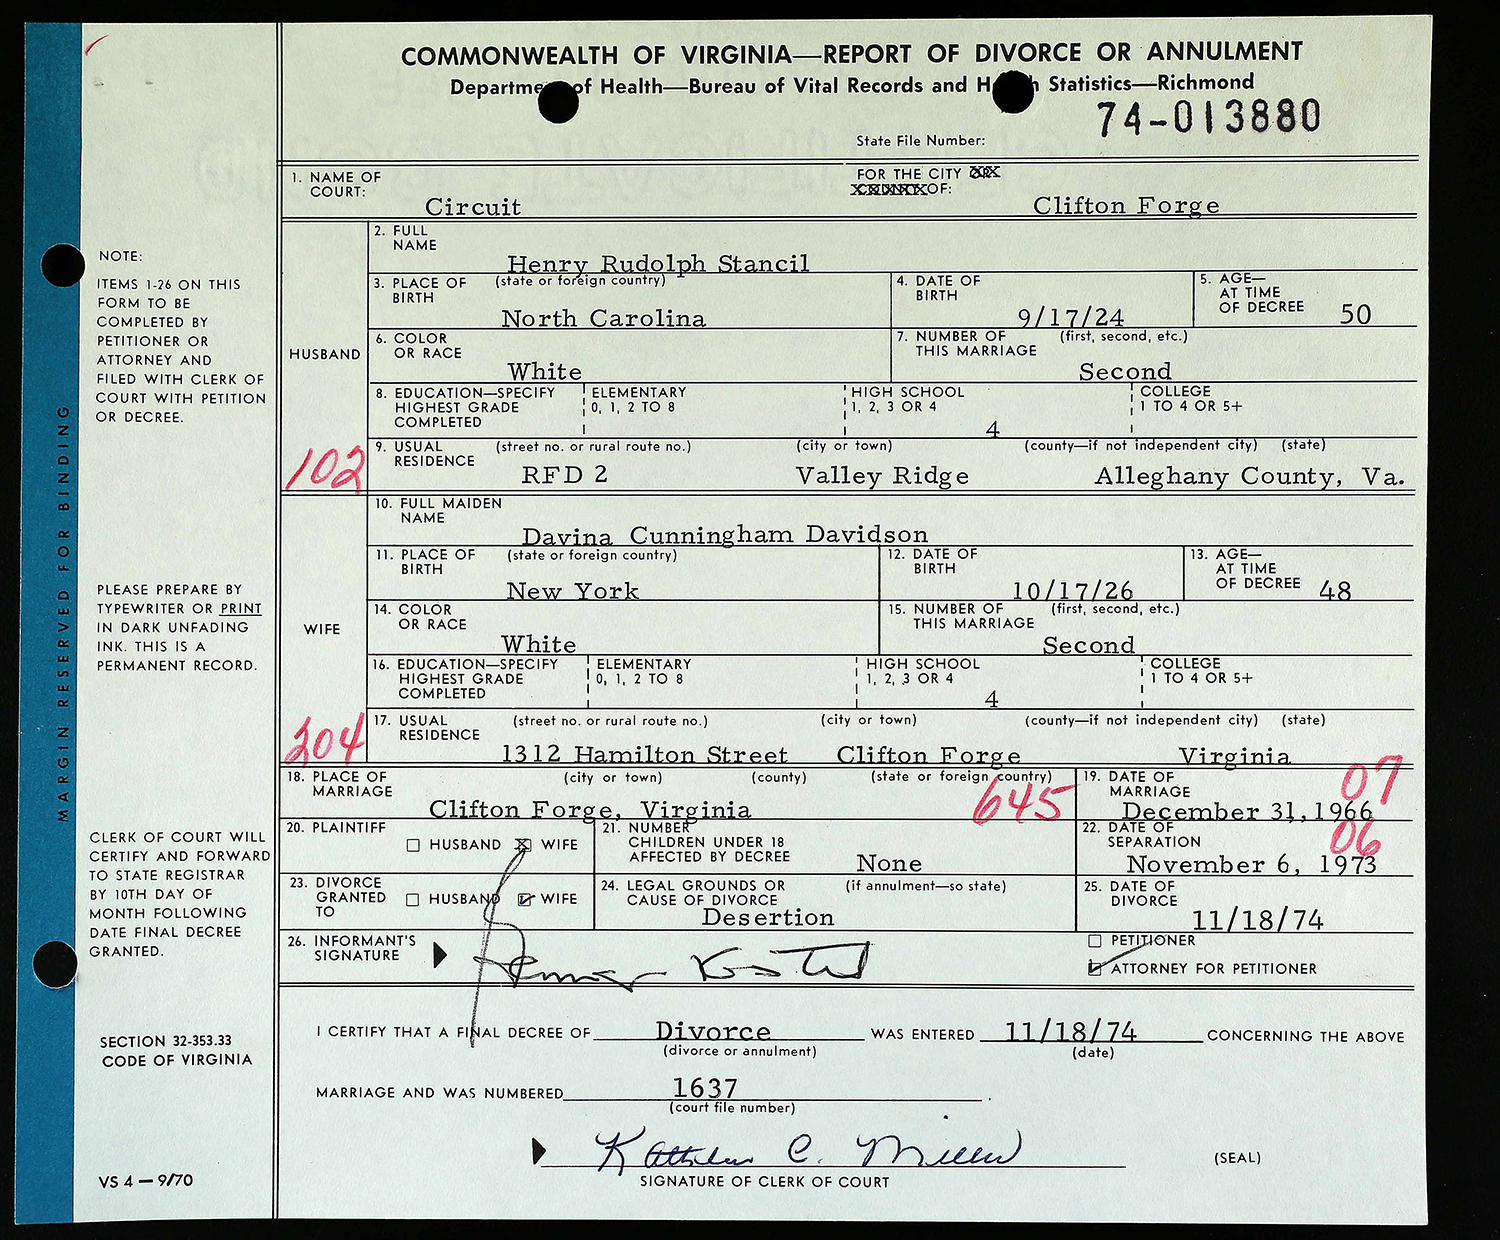 COMMONWEALTH OF VIRGINIA—REPORT OF DIVORCE OR ANNULMENT
Departme of Health—Bureau of Vital Records and H h Statistics—Richmond
74-013880
State File Number:
1. NAME OF COURT: Circuit
FOR THE CITY OR COUNTY OF: Clifton Forge
HUSBAND
2. FULL NAME Henry Rudolph Stancil
3. PLACE OF BIRTH (state or foreign country) North Carolina
4. DATE OF BIRTH 9/17/24
5. AGE—AT TIME OF DECREE 50
6. COLOR OR RACE White
7. NUMBER OF THIS MARRIAGE (first, second, etc.) Second
8. EDUCATION—SPECIFY HIGHEST GRADE COMPLETED
ELEMENTARY 0, 1, 2 TO 8
HIGH SCHOOL 1, 2, 3 OR 4 4
COLLEGE 1 TO 4 OR 5+
9. USUAL RESIDENCE (street no. or rural route no.) (city or town) (county—if not independent city) (state)
RFD 2 Valley Ridge Alleghany County, Va.
102
WIFE
10. FULL MAIDEN NAME Davina Cunningham Davidson
11. PLACE OF BIRTH (state or foreign country) New York
12. DATE OF BIRTH 10/17/26
13. AGE—AT TIME OF DECREE 48
14. COLOR OR RACE White
15. NUMBER OF THIS MARRIAGE (first, second, etc.) Second
16. EDUCATION—SPECIFY HIGHEST GRADE COMPLETED
ELEMENTARY 0, 1, 2 TO 8
HIGH SCHOOL 1, 2, 3 OR 4 4
COLLEGE 1 TO 4 OR 5+
17. USUAL RESIDENCE (street no. or rural route no.) (city or town) (county—if not independent city) (state)
1312 Hamilton Street Clifton Forge Virginia
204
18. PLACE OF MARRIAGE (city or town) (county) (state or foreign country)
Clifton Forge, Virginia 645
19. DATE OF MARRIAGE December 31, 1966 07
20. PLAINTIFF HUSBAND X WIFE
21. NUMBER CHILDREN UNDER 18 AFFECTED BY DECREE None
22. DATE OF SEPARATION November 6, 1973 06
23. DIVORCE GRANTED TO HUSBAND WIFE
24. LEGAL GROUNDS OR CAUSE OF DIVORCE (if annulment—so state) Desertion
25. DATE OF DIVORCE 11/18/74
26. INFORMANT'S SIGNATURE
PETITIONER
ATTORNEY FOR PETITIONER
I CERTIFY THAT A FINAL DECREE OF Divorce WAS ENTERED 11/18/74 CONCERNING THE ABOVE
(divorce or annulment) (date)
MARRIAGE AND WAS NUMBERED 1637 .
(court file number)
Kathleen C. Miller
SIGNATURE OF CLERK OF COURT
(SEAL)
NOTE:
ITEMS 1-26 ON THIS
FORM TO BE
COMPLETED BY
PETITIONER OR
ATTORNEY AND
FILED WITH CLERK OF
COURT WITH PETITION
OR DECREE.
PLEASE PREPARE BY
TYPEWRITER OR PRINT
IN DARK UNFADING
INK. THIS IS A
PERMANENT RECORD.
CLERK OF COURT WILL
CERTIFY AND FORWARD
TO STATE REGISTRAR
BY 10TH DAY OF
MONTH FOLLOWING
DATE FINAL DECREE
GRANTED.
SECTION 32-353.33
CODE OF VIRGINIA
VS 4 — 9/70
MARGIN RESERVED FOR BINDING